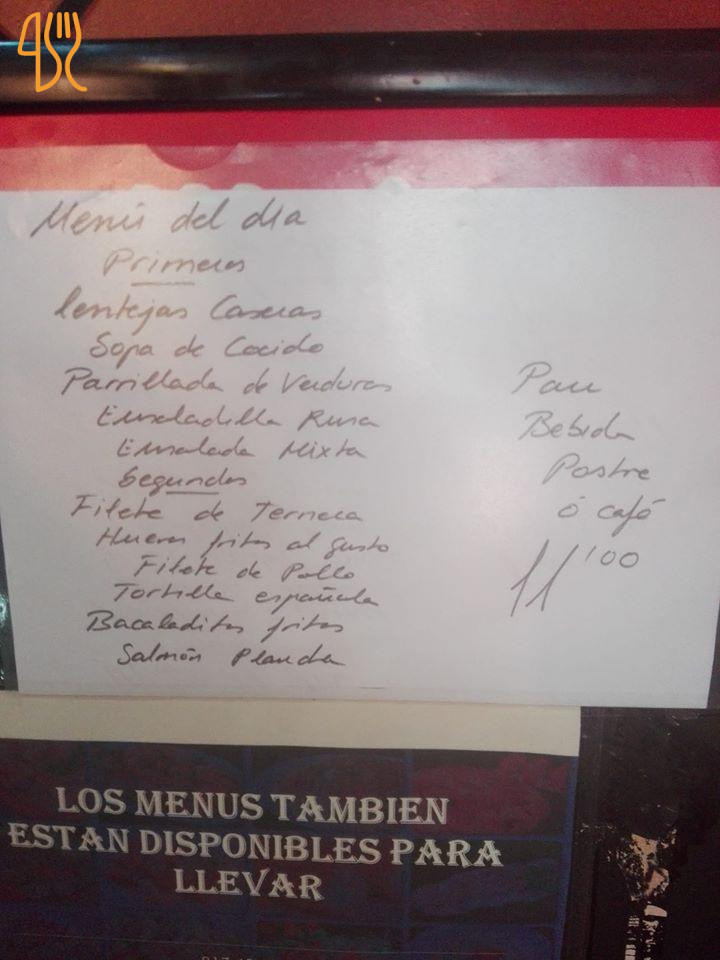 Menú del día
Primeros
lentejas Caseras
Sopa de Cocido
Parrillada de Verduras
Ensaladilla Rusa
Ensalada Mixta
Segundos
Filete de Ternera
Huevos fritos al gusto
Filete de Pollo
Tortilla española
Bacaladitos fritos
Salmón Plancha
Pan
Bebida
Postre
ó café
11'00
LOS MENUS TAMBIEN
ESTAN DISPONIBLES PARA
LLEVAR